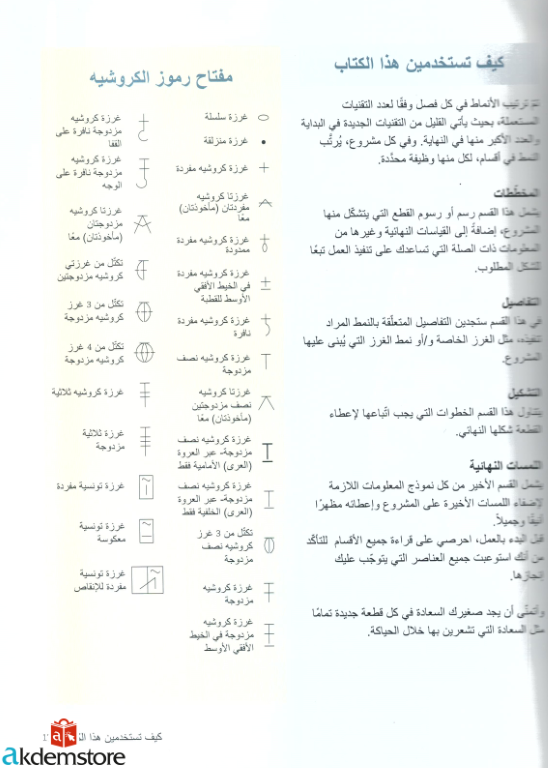 كيف تستخدمين هذا الكتاب
تمّ ترتيب الأنماط في كل فصل وفقًا لعدد التقنيات
المستعملة، بحيث يأتي القليل من التقنيات الجديدة في البداية
والعدد الأكبر منها في النهاية. وفي كل مشروع، يُرتَّب
النمط في أقسام، لكل منها وظيفة محدَّدة.
المخطّطات
يشمل هذا القسم رسم أو رسوم القطع التي يتشكّل منها
المشروع، إضافةً إلى القياسات النهائية وغيرها من
المعلومات ذات الصلة التي تساعدك على تنفيذ العمل تبعًا
للشكل المطلوب.
التفاصيل
في هذا القسم ستجدين التفاصيل المتعلّقة بالنمط المراد
تنفيذه، مثل الغرز الخاصة و/أو نمط الغرز التي يُبنى عليها
المشروع.
التشكيل
يتناول هذا القسم الخطوات التي يجب اتّباعها لإعطاء
القطعة شكلها النهائي.
اللمسات النهائية
يشمل القسم الأخير من كل نموذج المعلومات اللازمة
لإضفاء اللمسات الأخيرة على المشروع وإعطائه مظهرًا
أنيقًا وجميلًا.
قبل البدء بالعمل، احرصي على قراءة جميع الأقسام للتأكّد
من أنك استوعبت جميع العناصر التي يتوجّب عليك
إنجازها.
وأتمنّى أن يجد صغيرك السعادة في كل قطعة جديدة تمامًا
مثل السعادة التي تشعرين بها خلال الحياكة.
مفتاح رموز الكروشيه
غرزة سلسلة
غرزة منزلقة
غرزة كروشيه مفردة
غرزتا كروشيه
مفردتان (مأخوذتان)
معًا
غرزة كروشيه مفردة
ممدودة
غرزة كروشيه مفردة
في الخيط الأفقي
الأوسط للقطبة
غرزة كروشيه مفردة
نافرة
غرزة كروشيه نصف
مزدوجة
غرزتا كروشيه
نصف مزدوجتين
(مأخوذتان) معًا
غرزة كروشيه نصف
مزدوجة- عبر العروة
(العرى) الأمامية فقط
غرزة كروشيه نصف
مزدوجة- عبر العروة
(العرى) الخلفية فقط
تكتّل من 3 غرز
كروشيه نصف
مزدوجة
غرزة كروشيه
مزدوجة
غرزة كروشيه
مزدوجة في الخيط
الأفقي الأوسط
غرزة كروشيه
مزدوجة نافرة على
القفا
غرزة كروشيه
مزدوجة نافرة على
الوجه
غرزتا كروشيه
مزدوجتان
(مأخوذتان) معًا
تكتّل من غرزتي
كروشيه مزدوجتين
تكتّل من 3 غرز
كروشيه مزدوجة
تكتّل من 4 غرز
كروشيه مزدوجة
غرزة كروشيه ثلاثية
غرزة ثلاثية
مزدوجة
غرزة تونسية مفردة
غرزة تونسية
معكوسة
غرزة تونسية
مفردة للإنقاص
كيف تستخدمين هذا
akdemstore